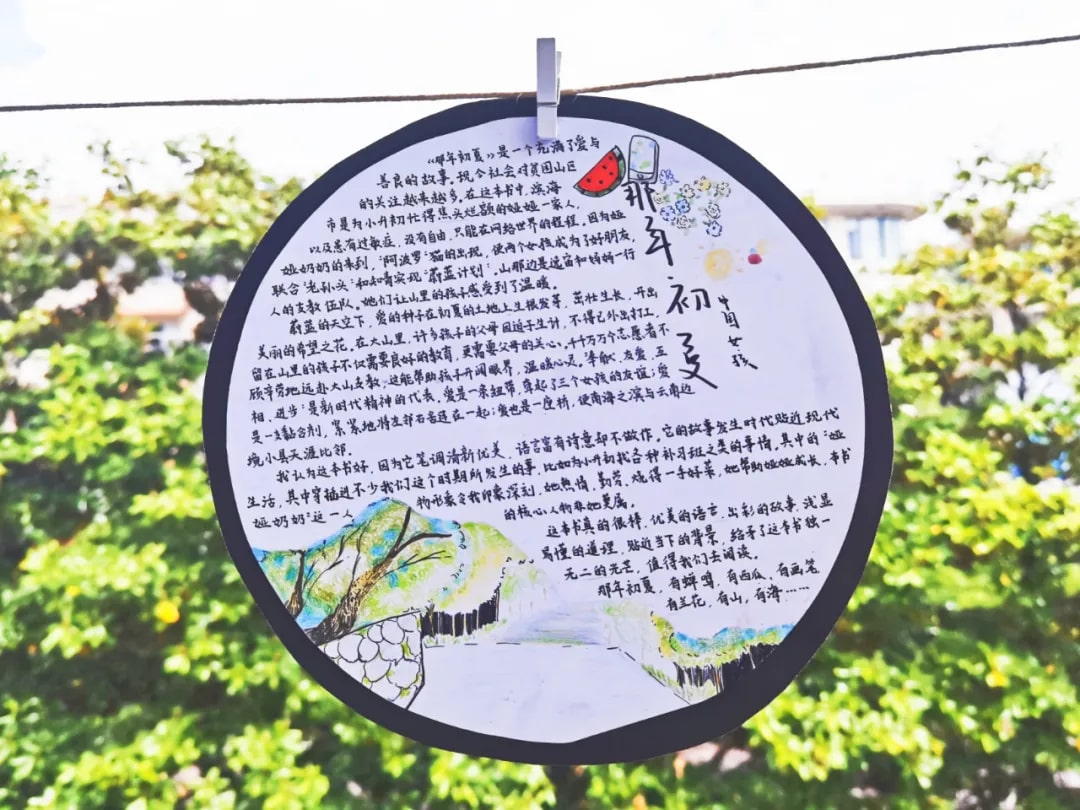 那年初夏
《那年初夏》是一个充满了爱与
善良的故事。现今社会对贫困山区
的关注越来越多。在这本书中，滨海
市是为小升初忙得焦头烂额的娅娅一家人，
以及患有过敏症，没有自由，只能在网络世界的程程。因为娅
娅奶奶的来到，“阿波罗”猫的出现，使两个女孩成为了好朋友，
联合“老孙头”和知青实现“蔚蓝计划”，山那边是远宙和妈妈一行
人的支教伍队。她们让山里的孩子感受到了温暖。
蔚蓝的天空下，爱的种子在初夏的土地上生根发芽，茁壮生长，开出
美丽的希望之花。在大山里，许多孩子的父母因迫于生计，不得已外出打工，
留在山里的孩子不仅需要良好的教育，更需要父母的关心。千千万万个志愿者不
顾辛劳地远赴大山支教，这能帮助孩子开阔眼界，温暖心灵。奉献、友爱、互
相、进步是新时代精神的代表。爱是一条纽带，牵起了三个女孩的友谊；爱
是一支黏合剂，紧紧地将左邻右舍连在一起；爱也是一座桥，使南海之滨与云南边
境小县天涯比邻。
我认为这本书好，因为它笔调清新优美，语言富有诗意却不做作，它的故事发生时代贴近现代
生活，其中穿插进不少我们这个时期所发生的事，比如为小升初找各种补习班之类的事情。其中的“娅
娅奶奶”这一人物形象令我印象深刻，她热情，勤劳，烧得一手好菜，她帮助娅娅成长，本书
的核心人物非她莫属。
这本书真的很棒，优美的语言，出彩的故事，浅显
易懂的道理，贴近当下的背景，给予了这本书独一
无二的光芒，值得我们去阅读。
那年初夏，有蝉鸣，有西瓜，有画笔
有兰花，有山，有海……